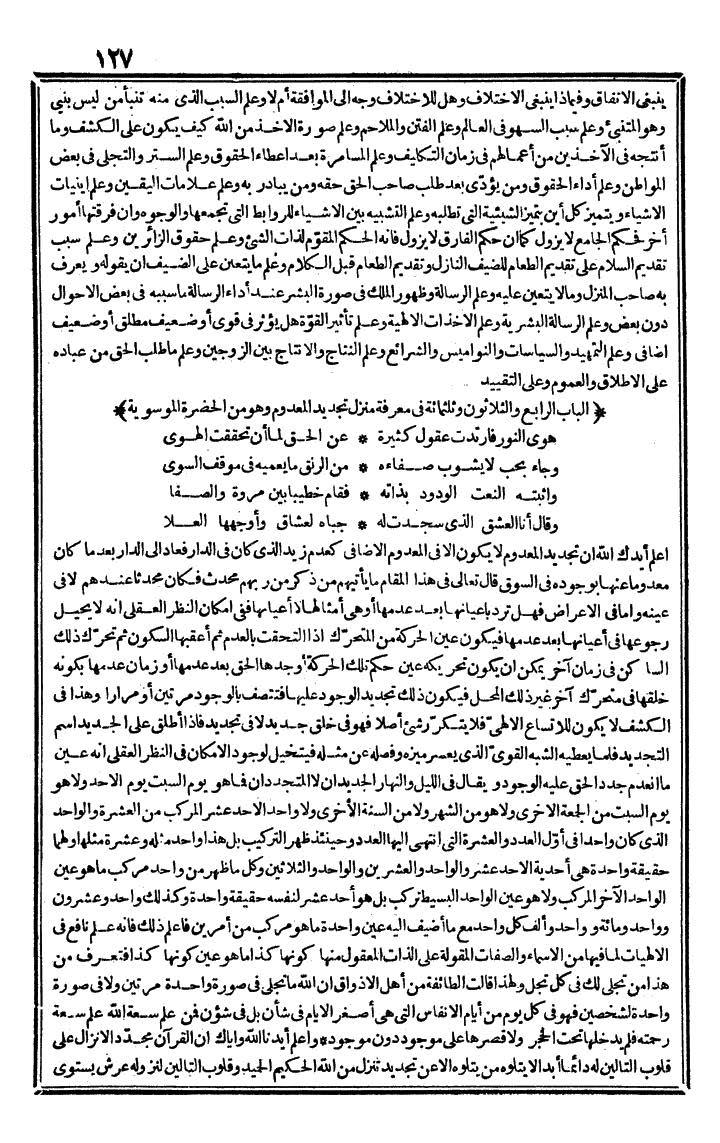 ١٢٧
ينبغي الاتفاق وفيماذا ينبغي الاختلاف وهل للاختلاف وجه الى الموافقة أم لا وعلم السبب الذى منه تنبأ من ليس بنبي
وهو المتنبئ وعلم سبب السهو فى العالم وعلم الفتن والملاحم وعلم صورة الاخذ من الله كيف يكون على الكشف وما
أنتجه فى الآخذين من أعمالهم فى زمان التكليف وعلم المسامرة بعد اعطاء الحقوق وعلم الستر والتجلى فى بعض
المواطن وعلم أداء الحقوق ومن يؤدّى بعد طلب صاحب الحق حقه ومن يبادر به وعلم علامات اليقين وعلم اينيات
الاشياء ويتميز كل أين بتميز الشيئية التى تطلبه وعلم التشبيه بين الاشياء للروابط التى تجمعها والوجوه وان فرقتها أمور
أخر فحكم الجامع لا يزول كما ان حكم الفارق لا يزول فانه الحكم المقوّم لذات الشئ وعلم حقوق الزائرين وعلم سبب
تقديم السلام على تقديم الطعام للضيف النازل وتقديم الطعام قبل الكلام وعلم ما يتعين على الضيف ان يقوله ويعرف
به صاحب المنزل وما لا يتعين عليه وعلم الرسالة وظهور الملك فى صورة البشر عند أداء الرسالة ما سببه فى بعض الاحوال
دون بعض وعلم الرسالة البشرية وعلم الاخذات الالهية وعلم تأثير القوّة هل يؤثر فى قوى أو ضعيف مطلق أو ضعيف
اضافى وعلم التمهيد والسياسات والنواميس والشرائع وعلم النتاج والانتاج بين الزوجين وعلم ما طلب الحق من عباده
على الاطلاق والعموم وعلى التقييد
﴿ الباب الرابع والثلاثون وثلثمائة فى معرفة منزل تجديد المعدوم وهو من الحضرة الموسوية ﴾
هوى النور فارتدت عقول كثيرة * عن الحق لما أن تحققت الهوى
وجاء بحب لا يشوب صفاءه * من الرنق ما يعميه فى موقف السوى
واثبته النعت الودود بذاته * فقام خطيبا بين مروة والصفا
وقال أنا العشق الذى سجدت له * جباه لعشاق وأوجهها العلا
اعلم أيدك الله ان تجديد المعدوم لا يكون الا فى المعدوم الاضافى كعدم زيد الذى كان فى الدار فعاد الى الدار بعد ما كان
معدوما عنها بوجوده فى السوق قال تعالى فى هذا المقام ما يأتيهم من ذكر من ربهم محدث فكان محدثا عندهم لا فى
عينه واما فى الاعراض فهل ترد باعيانها بعد عدمها أو هى أمثالها لا أعيانها فنى امكان النظر العقلى انه لا يحيل
رجوعها فى أعيانها بعد عدمها فيكون عين الحركة من المتحرّك اذا التحقت بالعدم ثم أعقبها السكون ثم تحرّك ذلك
الساكن فى زمان آخر يمكن ان يكون تحريكه عين حكم تلك الحركة أوجدها الحق بعد عدمها أو زمان عدمها بكونه
خلقها فى متحرّك آخر غير ذلك المحل فيكون ذلك تجديد الوجود عليها فتتصف بالوجود مرتين أو مرارا وهذا فى
الكشف لا يكون للاتساع الالهىّ فلا يتكرّر شئ أصلا فهو فى خلق جديد لا فى تجديد فاذا أطلق على الجديد اسم
التجديد فلما يعطيه الشبه القوىّ الذى يعسر ميزه وفصله عن مثله فيتخيل لوجود الامكان فى النظر العقلى انه عين
ما انعدم جدد الحق عليه الوجود ويقال فى الليل والنهار الجديدان لا المتجددان فما هو يوم السبت يوم الاحد ولا هو
يوم السبت من الجمعة الاخرى ولا هو من الشهر ولا من السنة الأخرى ولا واحد الاحد عشر المركب من العشرة والواحد
الذى كان واحدا فى أوّل العدد والعشرة التى انتهى اليها العدد وحينئذ ظهر التركيب بل هذا واحد مثله وعشرة مثلها ولهما
حقيقة واحدة هى أحدية الاحد عشر والواحد والعشرين والواحد والثلاثين وكل ما ظهر من واحد مركب ما هو عين
الواحد الآخر المركب ولا هو عين الواحد البسيط تركب بل هو أحد عشر لنفسه حقيقة واحدة وكذلك واحد وعشرون
وواحد ومائة وواحد وألف كل واحد مع ما أضيف اليه عين واحدة ما هو مركب من أمرين فاعلم ذلك فانه علم نافع فى
الالهيات لما فيها من الاسماء والصفات المقولة على الذات المعقول منها كونها كذا ما هو عين كونها كذا فتعرف من
هذا من تجلى لك فى كل تجل ولهذا قالت الطائفة من أهل الاذواق ان الله ما تجلى فى صورة واحدة مرتين ولا فى صورة
واحدة لشخصين فهو فى كل يوم من أيام الانفاس التى هى أصغر الايام فى شأن بل فى شؤن فمن علم سعة الله علم سعة
رحمته فلم يدخلها تحت الحجر ولا قصرها على موجود دون موجود * واعلم أيدنا الله واياك ان القرآن مجدّد الانزال على
قلوب التالين له دائما أبدا لا يتلوه من يتلوه الا عن تجديد تنزل من الله الحكيم الحميد وقلوب التالين لنزوله عرش يستوى